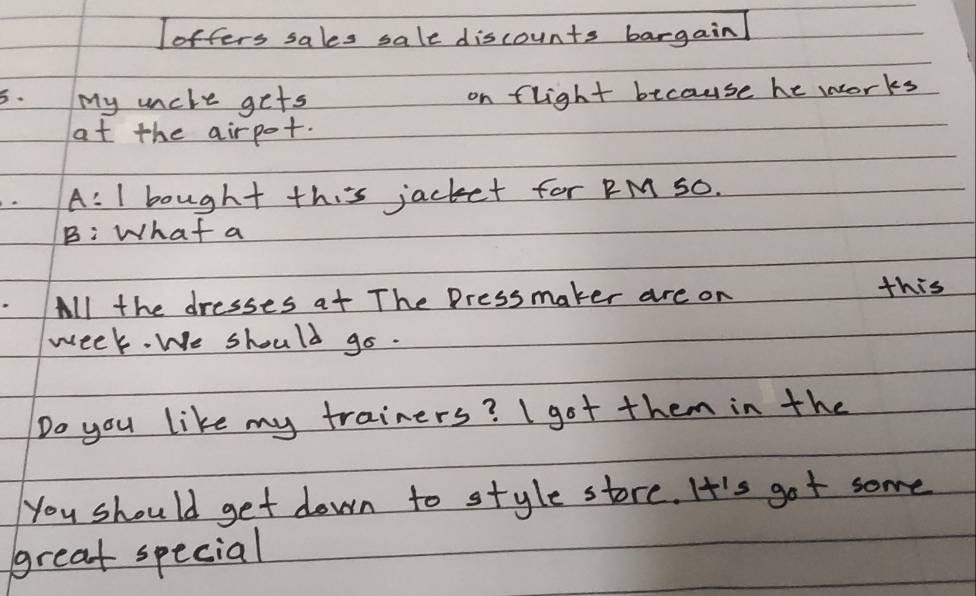 offers sales sale discounts bargain
5. My uncle gets on flight because he works
at the airpot.
. A: I bought this jacket for RM 50.
B: What a
. All the dresses at The Dressmaker are on this
week. We should go.
Do you like my trainers? I got them in the
You should get down to style store. It's got some
great special